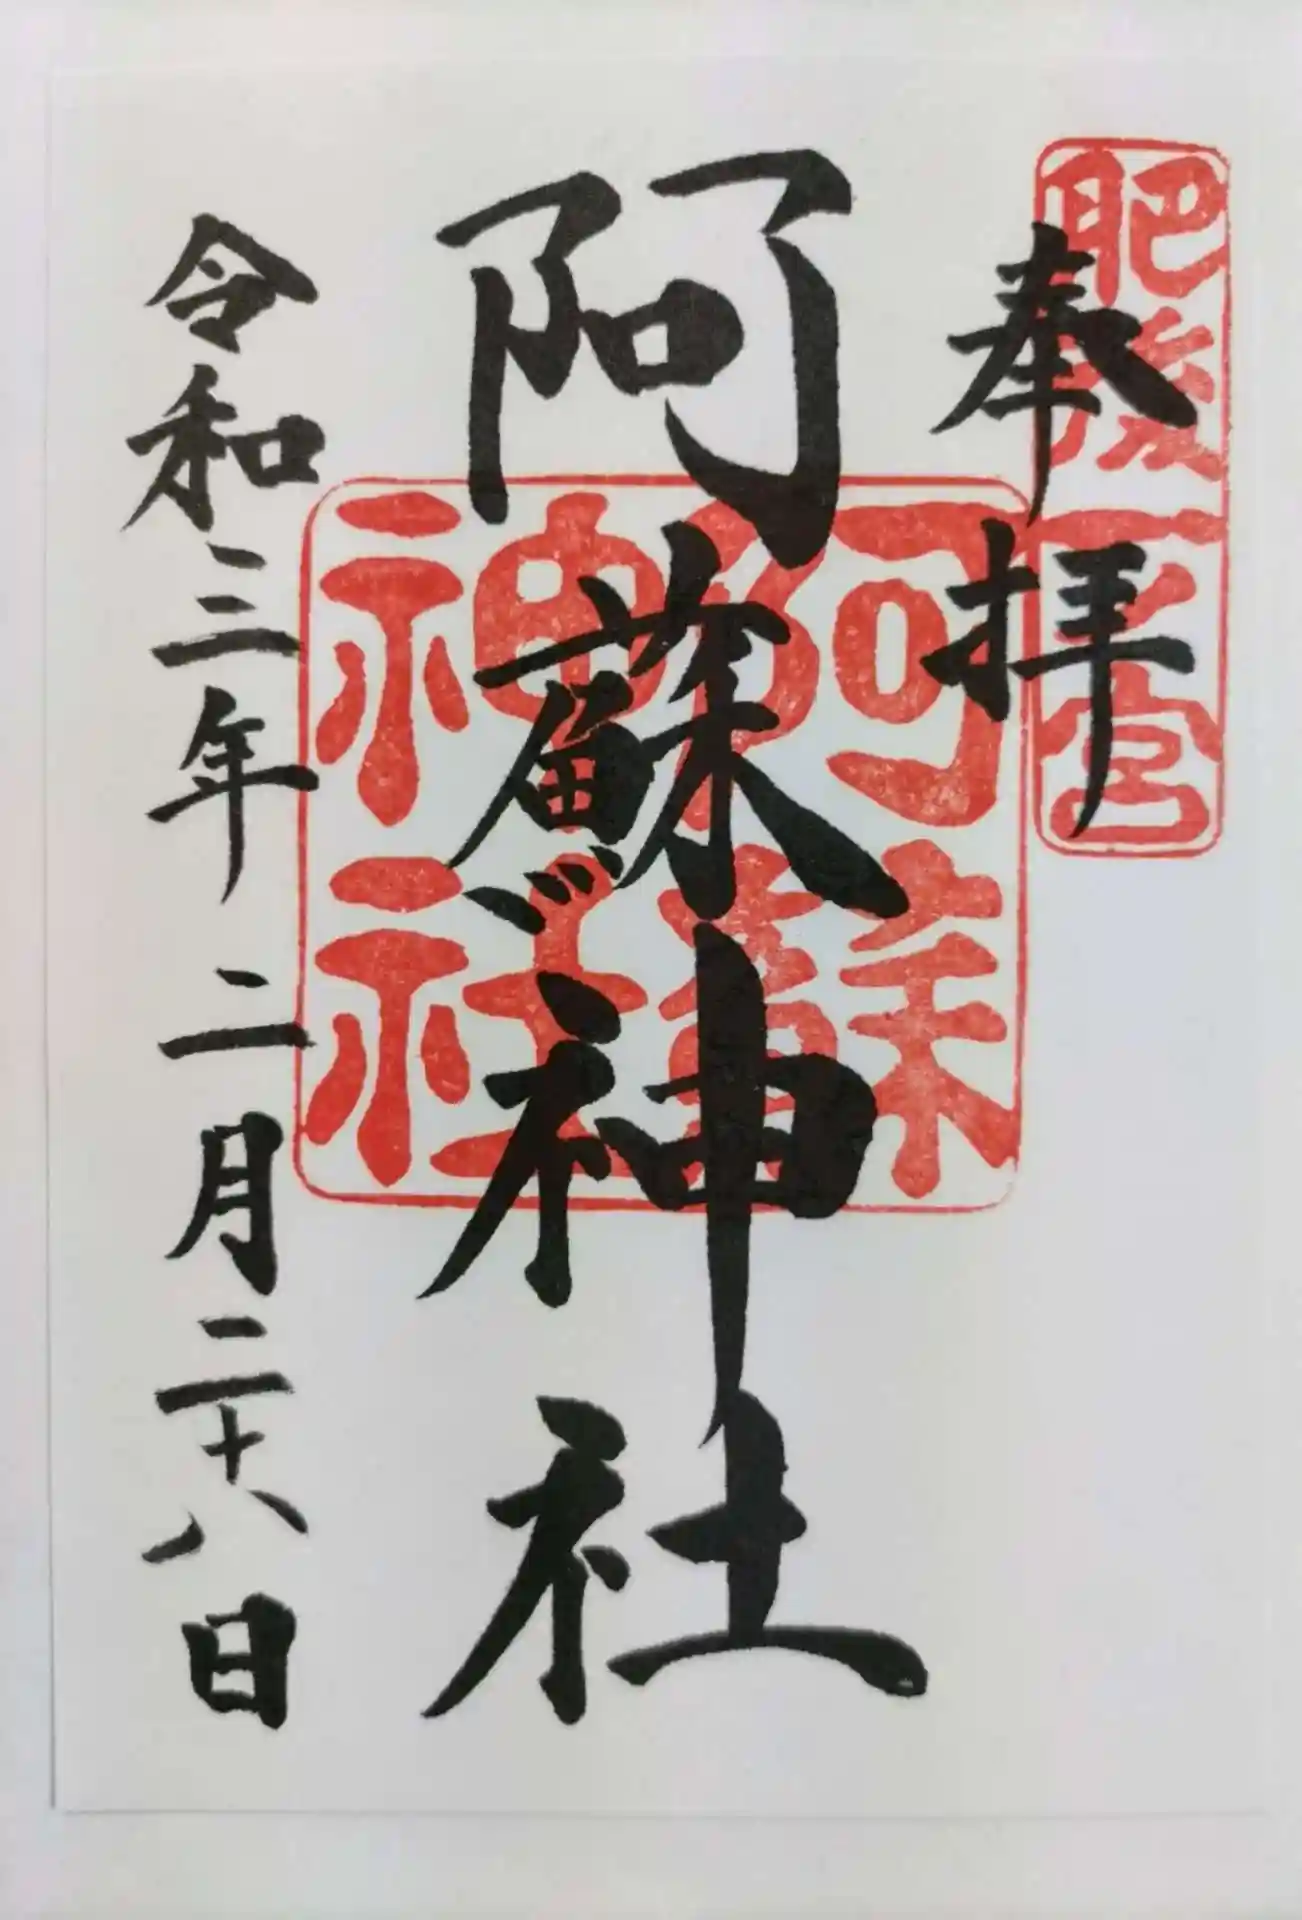 肥後一之宮
奉拝
阿蘇神社
阿蘇神社
令和三年二月二十八日